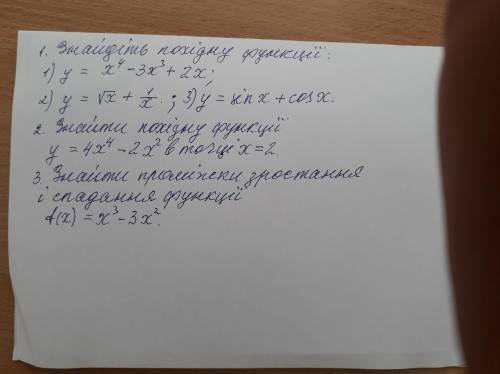 1. Знайдіть похідну функції:
1) y = x⁴ - 3x³ + 2x;
2) y = √x + 1/x. ; 3) y = sin x + cos x.
2. Знайти похідну функції
y = 4x⁴ - 2x² в точці x = 2.
3. Знайти проміжки зростання
і спадання функції
f(x) = x³ - 3x².